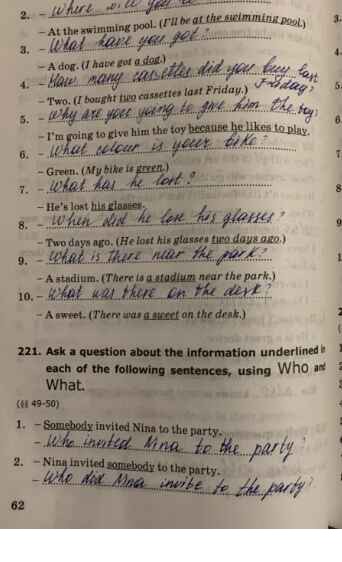 2. – Where will you
– At the swimming pool. (I'll be at the swimming pool.)
3. – What have you got?
– A dog. (I have got a dog.)
4. – How many cassettes did you buy last
Friday?
– Two. (I bought two cassettes last Friday.)
5. – Why are you going to give him the toy?
– I'm going to give him the toy because he likes to play.
6. – What colour is your bike?
– Green. (My bike is green.)
7. – What has he lost?
– He's lost his glasses.
8. – When did he lose his glasses?
– Two days ago. (He lost his glasses two days ago.)
9. – What is there near the park?
– A stadium. (There is a stadium near the park.)
10. – What was there on the desk?
– A sweet. (There was a sweet on the desk.)
221. Ask a question about the information underlined in
each of the following sentences, using Who and
What.
(§§ 49-50)
1. – Somebody invited Nina to the party.
– Who invited Nina to the party?
2. – Nina invited somebody to the party.
– Who did Nina invite to the party?
62